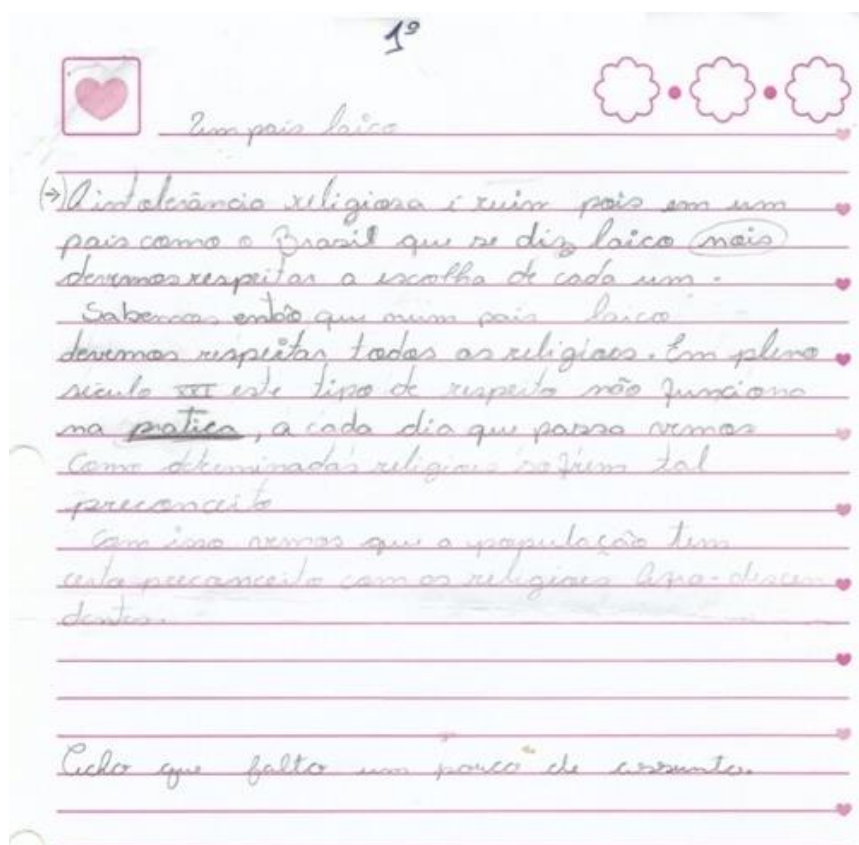 1º
Um pais laico
(→) A intolerância religiosa é ruim pois em um
pais como o Brasil que se diz laico mais
devemos respeitar a escolha de cada um.
Sabemos então que num pais laico
devemos respeitar todas as religiões. Em pleno
século XXI este tipo de respeito não funciona
na pratica, a cada dia que passa vemos
como determinadas religiões sofrem tal
preconceito
Com isso vemos que a população tem
certa preconceito com as religiões afro-descen
dentes.
Acho que falto um pouco de assunto.